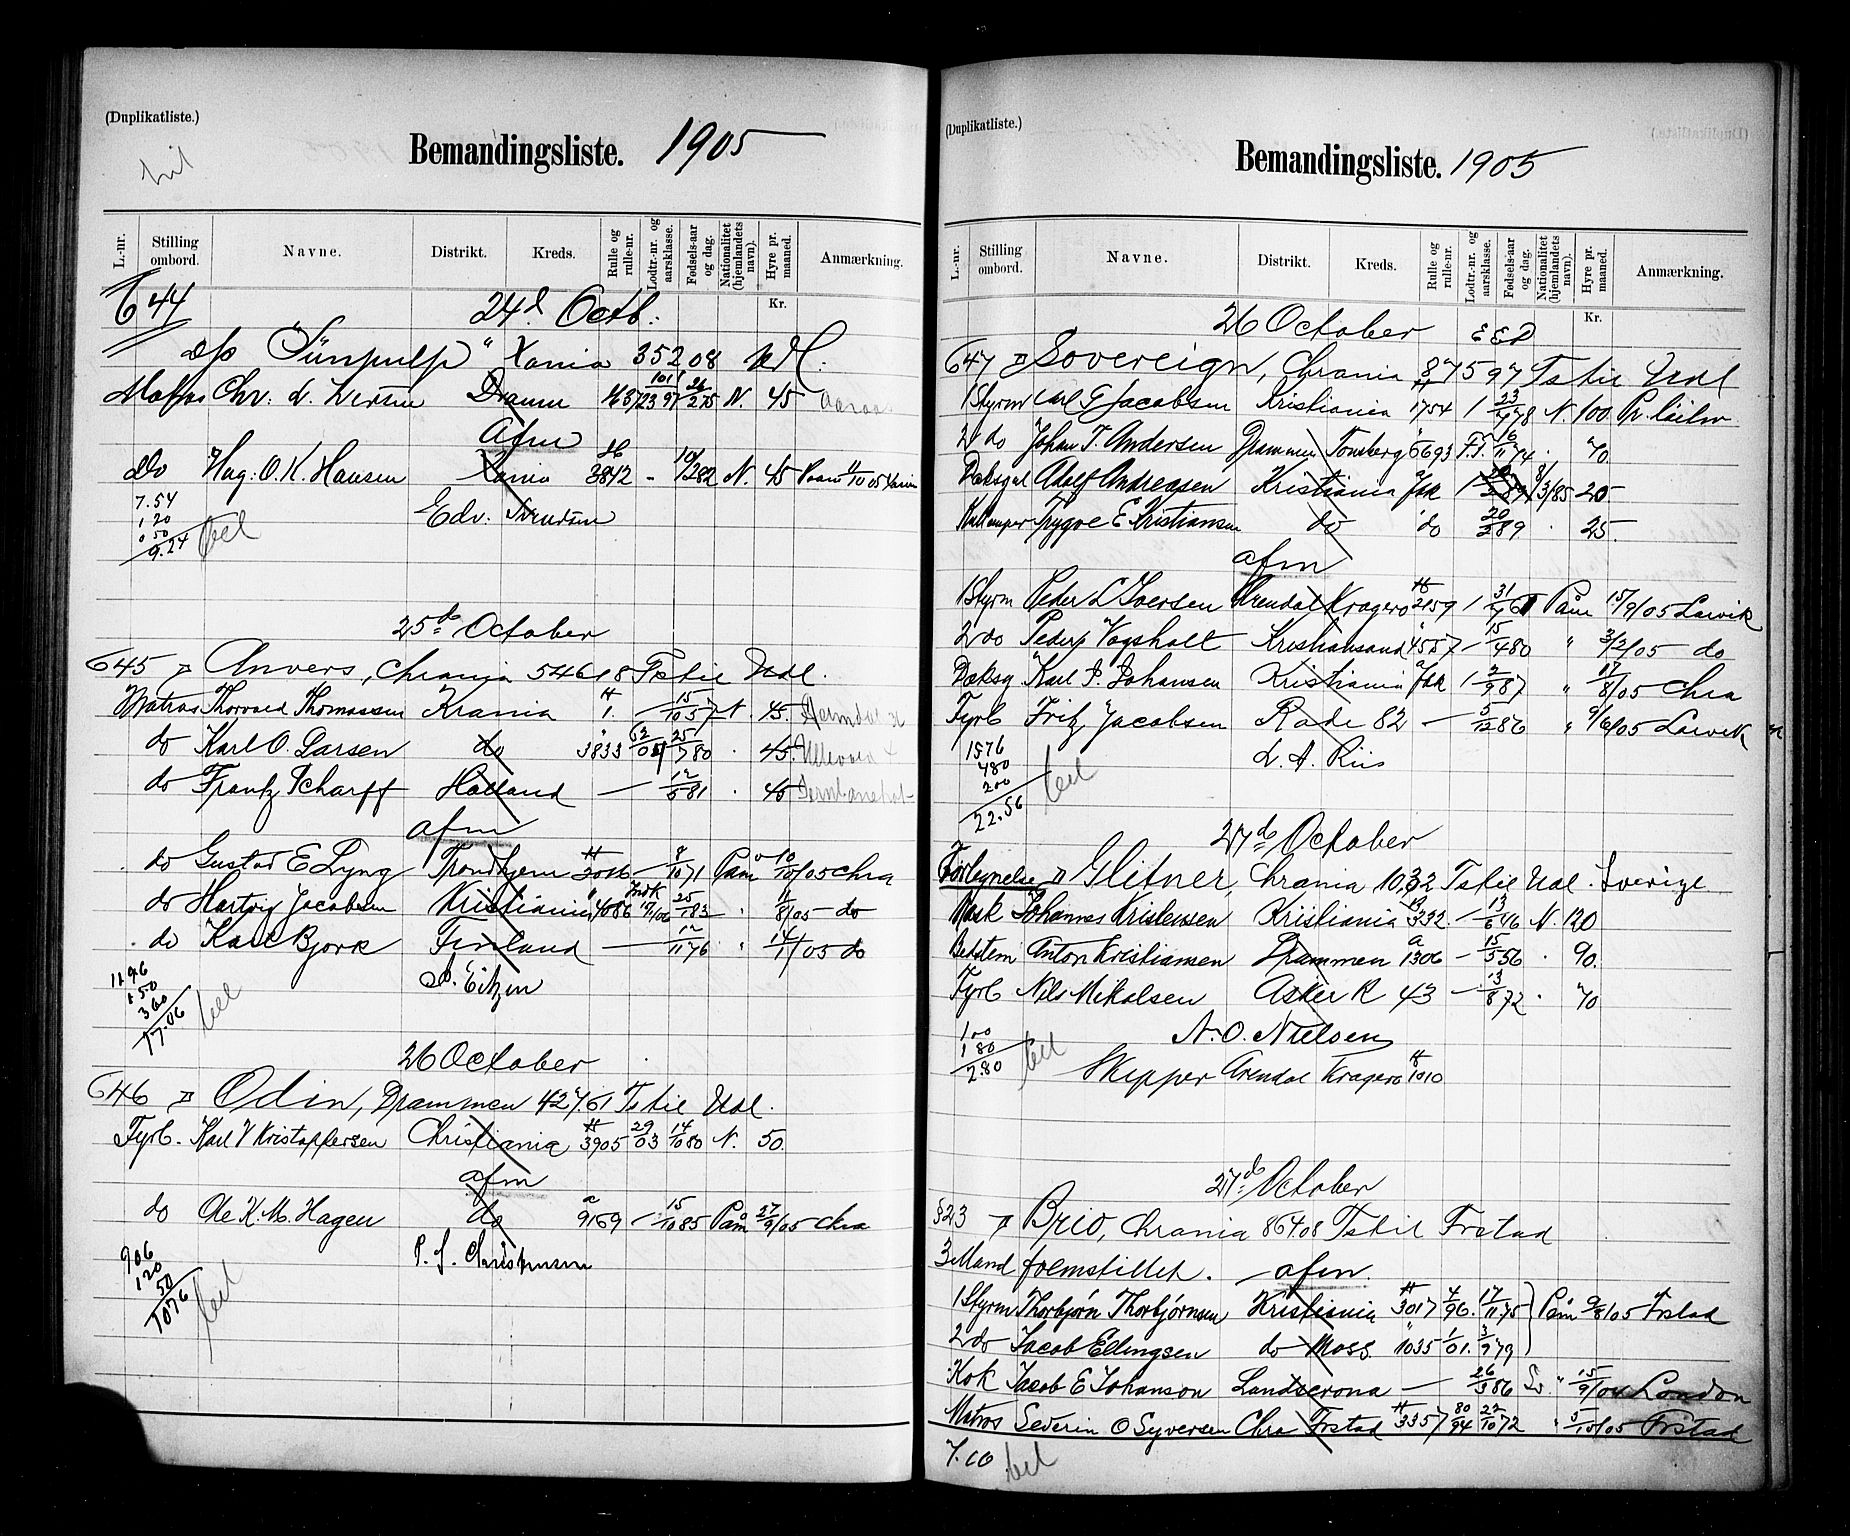 (Duplikatliste.)
Bemandingsliste. 1905
L.-nr. Stilling ombord. Navne. Distrikt. Kreds. Rulle og rulle-nr. Lodtr.-nr. og aarsklasse. Fødsels-aar og dag. Nationalitet (hjemlandets navn). Hyre pr. maaned. Anmærkning.
Kr.
644 24d Octb:
Xania 352,08
Chr: Dramn N. 45
Afm
do Hag: O. K. Hansen Xania 3842 - 10/2 82 N. 45
Edv.
7.54
1 20
0 50
9.24 bet
25de October
645 Anvers, Chrania 546,18 Ts til Udl.
Matros Thorvald Thomassen Krania 1. — 15/10 57 N. 45.
do Karl O. Larsen do 3833 52/01 25/7 80 . 45.
do Frantz Scharff Holland — 12/5 81 . 45
afm
do Gustav E Lyng Trondhjem 3016 — 8/10 71 Paam 10/10/05 Chra
do Hartvig Jacobsen Kristiania 4086 25/1 83 " 1/8/05 - do
do Karl Bjork Finland — 12/11 76 " 14/1/05 do
S. Eitzen
11 96
1 50
3 60
17.06 bet
26 October
646 Odin, Drammen 427,61 Ts til Udl.
Fyrb. Karl V Kristoffersen Christiania 3905 29/03 14/10 80 N. 50.
afm
do Ole K. M. Hagen do 9169 — 15/10 85 Paam 27/9/05 Chra
P. S. Christensen
906
1 20
50
1076 bet
(Duplikatliste.)
Bemandingsliste. 1905
L.-nr. Stilling ombord. Navne. Distrikt. Kreds. Rulle og rulle-nr. Lodtr.-nr. og aarsklasse. Fødsels-aar og dag. Nationalitet (hjemlandets navn). Hyre pr. maaned. Anmærkning.
Kr.
26 October E & D
647 Sovereign, Chrania 875 97 Ts til Udl
1 Styrm Carl G Jacobsen Kristiania 1754 1 23/4 78 N. 100
2 do Johan T. Andersen Drammen Tønsberg 6693 F.T. 16/11 74 . 70
Dæksgut Adolf Andreasen Kristiania 1 8/3/85 20
Trygve E Kristiansen do do 20/2 89 . 25.
afm
1 Styrm Peder L Iversen Arendal Kragerø 2159 1 31/7 61 Paam 15/9/05 Larvik
2 do Peder Vogsholt Kristiansand 4557 — 15/4 80 " 3/2/05 do
Dæksg Karl P. Johansen Kristiania 1 2/9 87 " 17/8/05 Chra
Fyrb Fritz Jacobsen Rade 82 — 5/12 86 " 9/6/05 Larvik
L. A. Riis
1576
480
200
22.56 bet
27de October
Forlegnelse Glitner, Chrania 10,32 Ts til Udl. Sverige
Mask Johannes Kristensen Kristiania 332. — 13/6 46 N. 120
Bedstem Anton Kristiansen Drammen 1306 — 15/5 56 . 90.
Fyrb Nils Mikalsen Asker R 43 — 13/8 72 . 70
N. O. Nielsen
Skipper Arendal Kragerø 1010
1 00
1 80
2.80 bet
27de October
§23 Brio, Chrania 864.08 Ts til Frstad
3 Mand fremstillet. — afm.
1 Styrm Thorbjørn Thorbjørnsen Kristiania 3017 4/96. 17/11 75 Paam 9/8/05 Frstad
2 do Jacob Ellingsen do Moss 1035 1/01. 3/9 79
Kok Jacob E Johanson Landscrona — 26/3 86 Sv. " 15/9/04 London
Matros Severin O Syversen Chra Frstad 3357 80/94 22/10 72 " 5/10/05 Frstad
7.60 bet